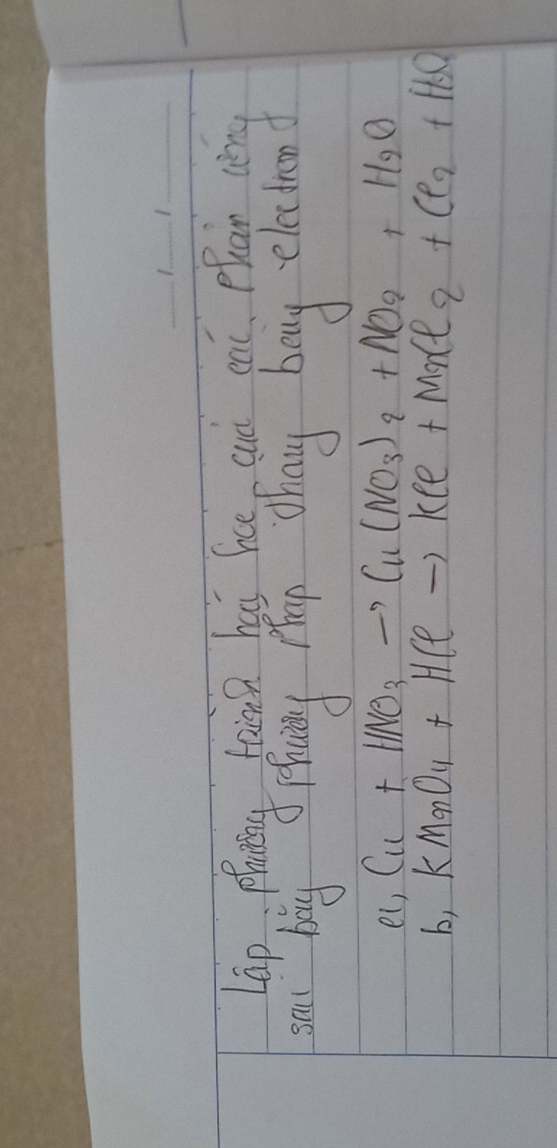 Lập phương trình hoá học của các phản ứng
sau bằng phương pháp thăng bằng electron
a, Cu + HNO3 → Cu(NO3)2 + NO2 + H2O
b, KMnO4 + HCl → KCl + MnCl2 + Cl2 + H2O